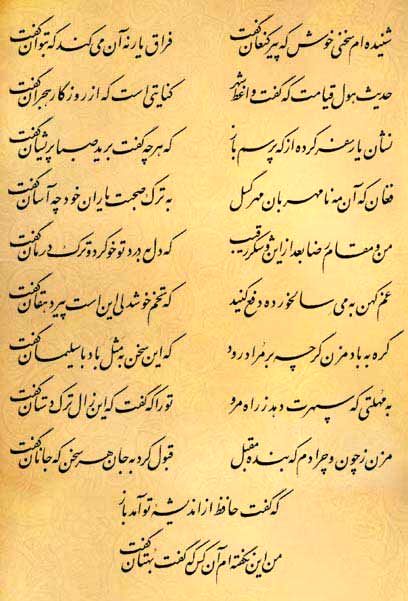 شنیده‌ام سخنی خوش که پیر کنعان گفت فراق یار نه آن می‌کند که بتوان گفت
حدیث هول قیامت که گفت واعظ شهر کنایتی است که از روزگار هجران گفت
نشان یار سفر کرده از که پرسم باز که هر چه گفت برید صبا پریشان گفت
فغان که آن مه نامهربان مهر گسل به ترک صحبت یاران خود چه آسان گفت
من و مقام رضا بعد از این و شکر رقیب که دل به درد تو خو کرد و ترک درمان گفت
غم کهن به می سالخورده دفع کنید که تخم خوشدلی این است پیر دهقان گفت
گره به باد مزن گر چه بر مراد رود که این سخن به مثل باد با سلیمان گفت
به مهلتی که سپهرت دهد ز راه مرو تو را که گفت که این زال ترک دستان گفت
مزن ز چون و چرا دم که بنده مقبل قبول کرد به جان هر سخن که جانان گفت
که گفت حافظ از اندیشه تو آمد باز
من این نگفته‌ام آن کس که گفت بهتان گفت